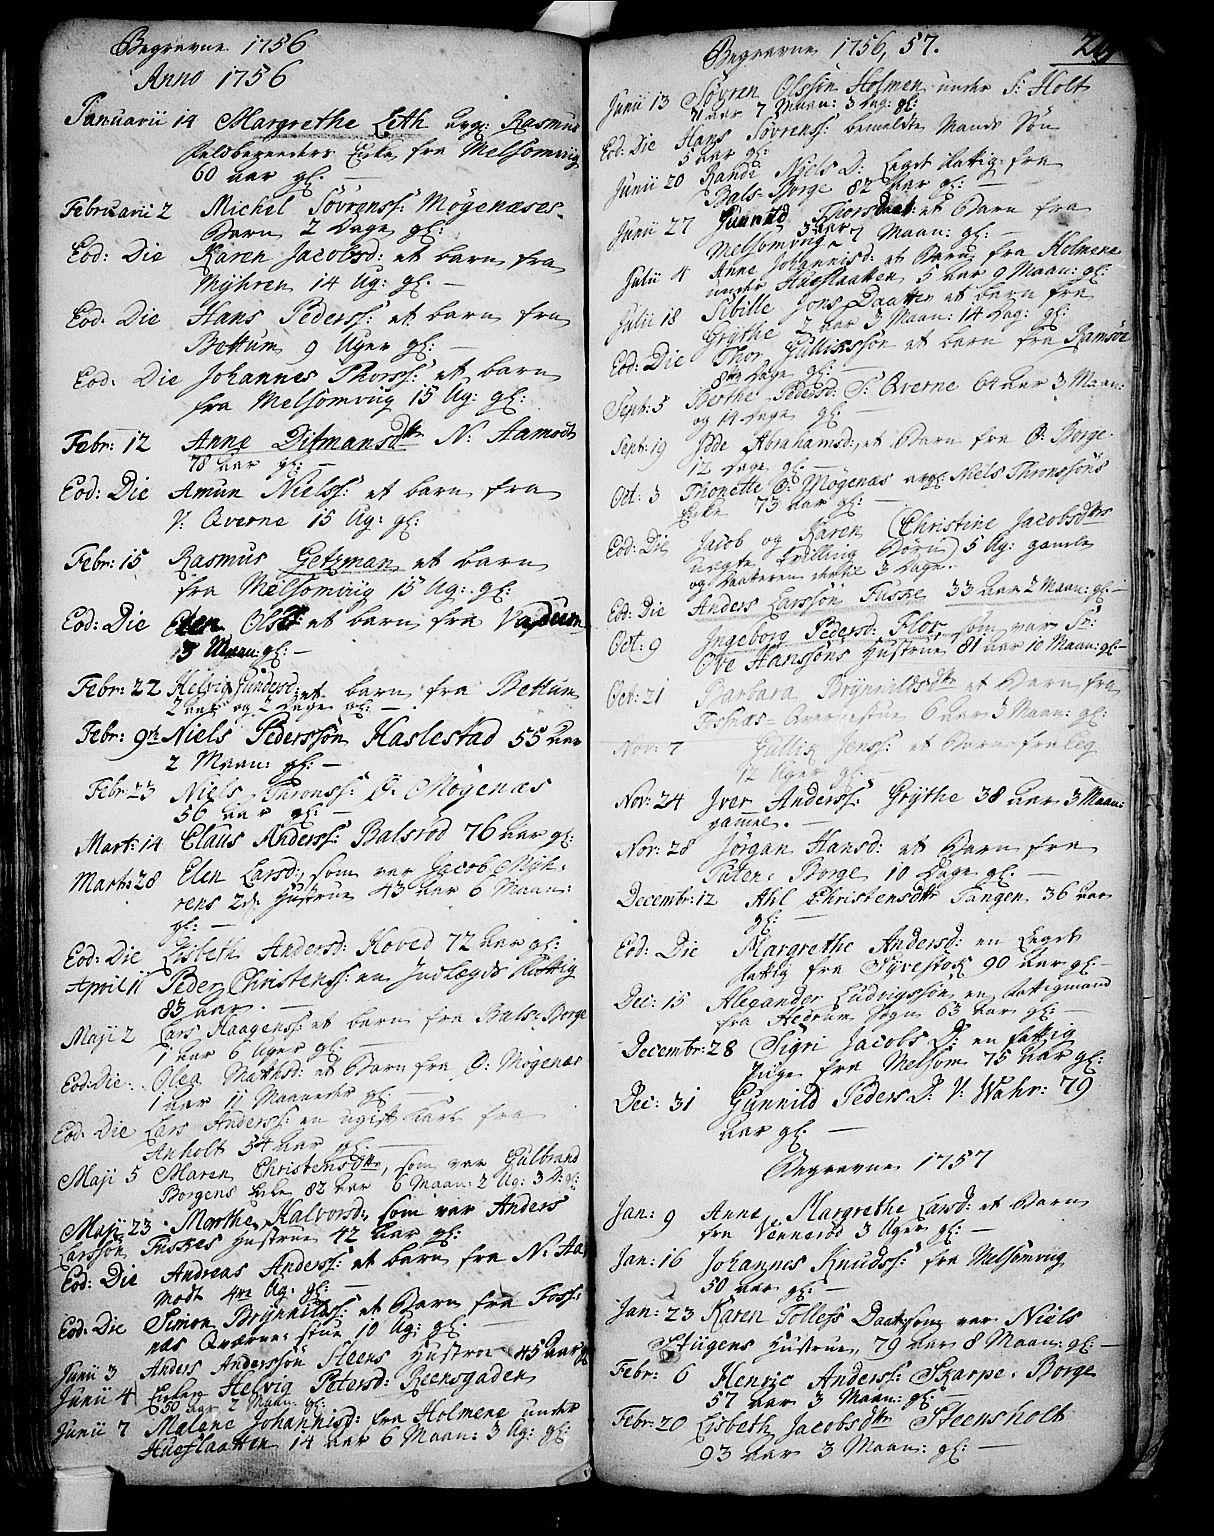 Begravne 1756
Anno 1756
Januarii 14 Margrethe Leth Rasmus
Feldbereeders Enke fra Melsomvig
60 aar gl: —
Februarii 2 Michel Sövrenss: Mögenæses
Barn 2 Dage gl:
Eod: Die Karen Jacobsd: et barn fra
Myhren 14 Ug: gl. —
Eod: Die Hans Pederss: et barn fra
Bettum 9 Uger gl: —
Eod: Die Johannes Thorss: et barn
fra Melsomvig 15 Ug: gl:
Febr: 12 Anne Ditmansdtr N: Aamodt
78 aar gl: —
Eod: Die Amun Nielss: et barn fra
V: Qverne 15 Ug: gl:
Febr: 15 Rasmus Getzman et barn
fra Melsomvig 15 Ug: gl:
Eod: Die Olsd: et barn fra
13 Maan: gl: —
Febr: 22 Helvig et barn fra Bettum
2 aar og 2 Dage gl: —
Febr: 9de Niels Pederssön Haslestad 55 aar
2 Maan: gl: —
Febr: 23 Niels Thronss: Ö: Mögenæs
56 aar gl: —
Mart: 14 Claus Anderss: Balsrod 76 aar gl:
Mart: 28 Elen Larsd:, som var Jacob Myh-
rens 2de Hustrue 43 aar 6 Maan:
gl: —
Eod: Die Lisbeth Andersd: Hoved 72 aar gl:
April 11 Peder Christenss: en Indlægds Fattig
83 aar. —
Maji 2 Lars Haagenss: et barn fra Bals-Borge
1 aar 6 Uger gl: —
Eod: Die: Olea Mathisd: et Barn fra Ö: Mögenæs
1 aar 11 Maaneder gl —
Eod: Die Lars Anderss: en ugift Karl fra
Anholt 54 aar gl: —
Maji 5 Maren Christensdtr, som var Gulbrand
Borgens Enke 82 aar 6 Maan: 2 Ug: 3 D: gl:
Maji 23 Marthe Halvorsd:, som var Anders
Larssön Fuskes Hustrue 42 aar gl:
Eod: Die Andreas Anderss: et barn fra N: Aa
modt 4re Ug: gl: —
Eod: Die Simon Brynnildss: et Barn fra Foss:
næs Qværne: stue 10 Ug: gl: —
Junii 3 Anders Anderssön Steens Hustroe 45 aar gl
Junii 4 Enken Helvig Petersd: Reensgaden
50 aar 2 Maan: gl:
Junii 7 Malene Johannisd: fra Holmene under
Huuslaatten 14 aar 6 Maan: 3 Ug: gl:
Begravne 1756, 57.
Junii 13 Sövren Olssön Holmen under S: Holt
71 aar 7 Maan: 3 Dag: gl:
Eod: Die Hans Sövrenss: bemeldte Mands Sön
5 aar gl:
Junii 20 Randi Niels D: Legds fattig fra
Bals-Borge 82 Aar gl: —
Junii 27 Gunnild et Barn fra
Melsomvig 3 aar 7 Maan: gl: —
Julii 4 Anne Johannisd: et Barn fra Holmene
under Huuslaatten 5 aar 9 Maan: gl:
Julii 18 Sibille Jons Daatter et barn fra
Grythe 2 aar 3 Maan: 14 Dag: gl:
Eod: Die Thor Gullikssön et barn fra Ramsöe
8te Dage gl: —
Sept: 5 Berthe Pedersd: S: Qverne 64 aar 3 Maan:
og 14 Dage gl: —
Sept: 19 Idde Abrahamsd: et Barn fra Ö: Borge
12 Dage gl: —
Oct: 3 Thonette Ö: Mögenæs Niels Thronssöns
Enke 73 aar gl: —
Eod: Die Jacob og Karen Christine Jacobsdtrs
uægte tvilling Börn 5 Ug: gamle
og Daateren 3 Dage.
Eod: Die Anders Larssön Fuske 33 aar 2 Maan: gl: —
Oct: 9 Ingeborg Pedersd: Flor som var Sr:
Ove Hanssöns Hustrue 81 aar 10 Maan: gl —
Oct: 21 Barbara Brynnildsdtr et Barn fra
Fosnæs-Qvernestue 6 aar 3 Maan: gl:
Nov: 7 Gullik Jenss: et Barn fra Eeg
12 Uger gl: —
Nov: 24 Iver Anderss: Grythe 38 aar 3 Maan:
gamel. —
Nov: 28 Jörgan Hansd: et Barn fra
Borge 10 Dage gl: —
Decembr: 12 Ahl Christensdtr Tangen 36 aar
gl: —
Eod: Die Margrethe Andersd: en Legds
fattig fra Syvestok 90 aar gl: —
Dec: 15 Alexander Ludvigssön en fattigmand
fra Hedrum Sogn 63 aar gl: —
Decembr: 28 Sigri Jacobs D: en fattig
Pige fra Melsom 75 aar gl:
Dec: 31 Gunnild Peders D: V: Wahr: 79
aar gl: —
Begravne 1757
Jan: 9 Anne Margrethe Larsd: et Barn
fra Vennerod 3 Uger gl: —
Jan: 16 Johannes Knudss: fra Melsomvig
50 aar gl: —
Jan: 23 Karen Tollefs Daat: som var Niels
Stugens Hustrue 79 aar 8 Maan: gl: —
Febr: 6 Henric Anderss: Skarpe-Borge
57 aar 3 Maan: gl: —
Febr: 20 Lisbeth Jacobsdtr Steensholt
93 aar 3 Maan: gl: —